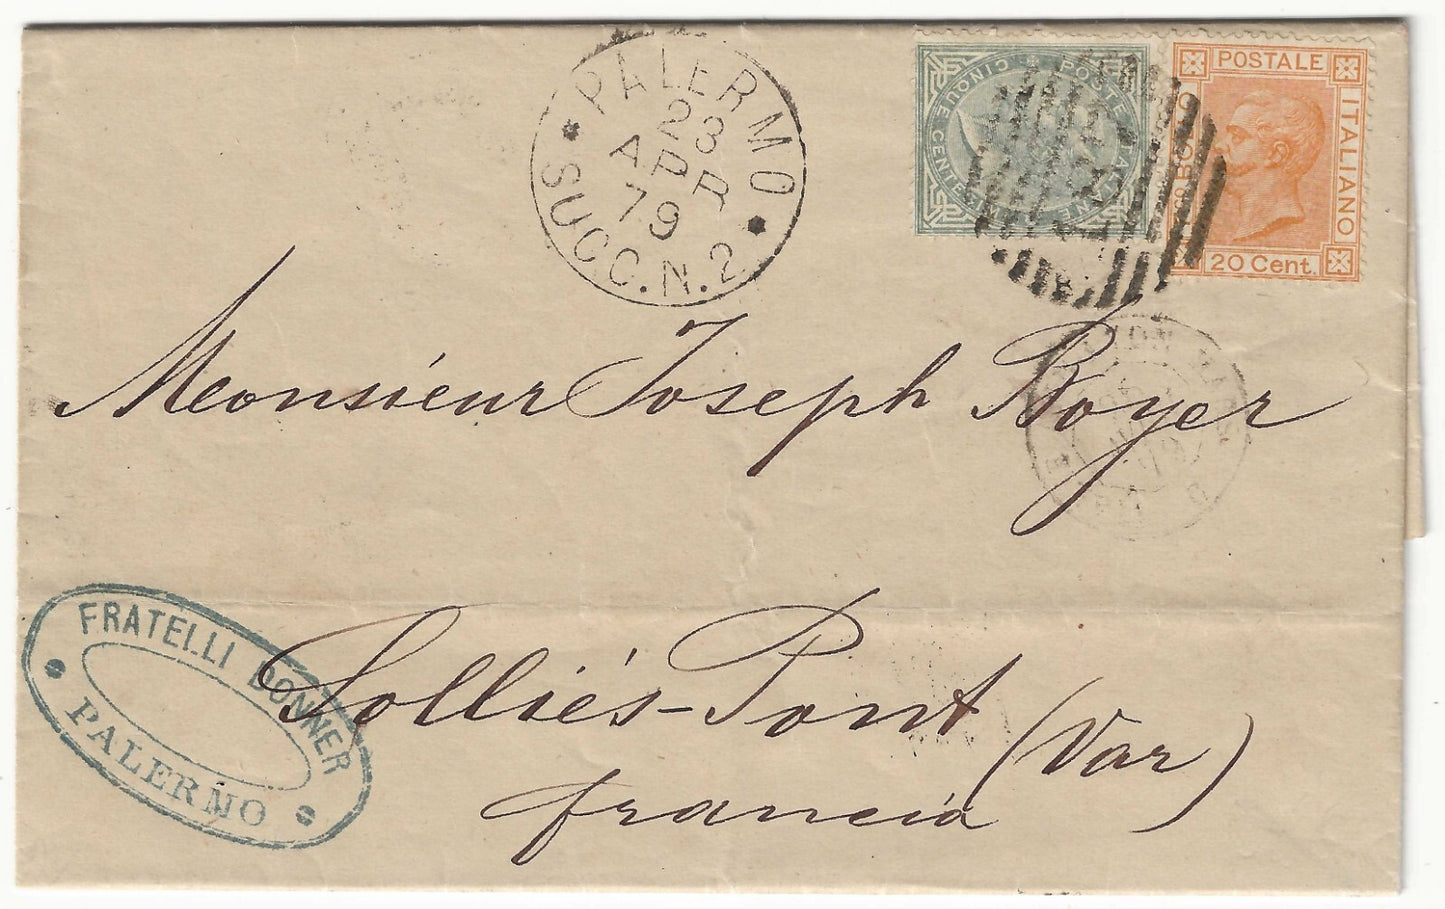 PALERMO
23
APR
79
SUCC. N. 2
POSTE ITALIANE
CINQUE CENTESIMI
BOLLO POSTALE ITALIANO
20 Cent.
Monsieur Joseph Boyer
FRATELLI DONNER
PALERMO
Solliés-Pont (Var)
francia